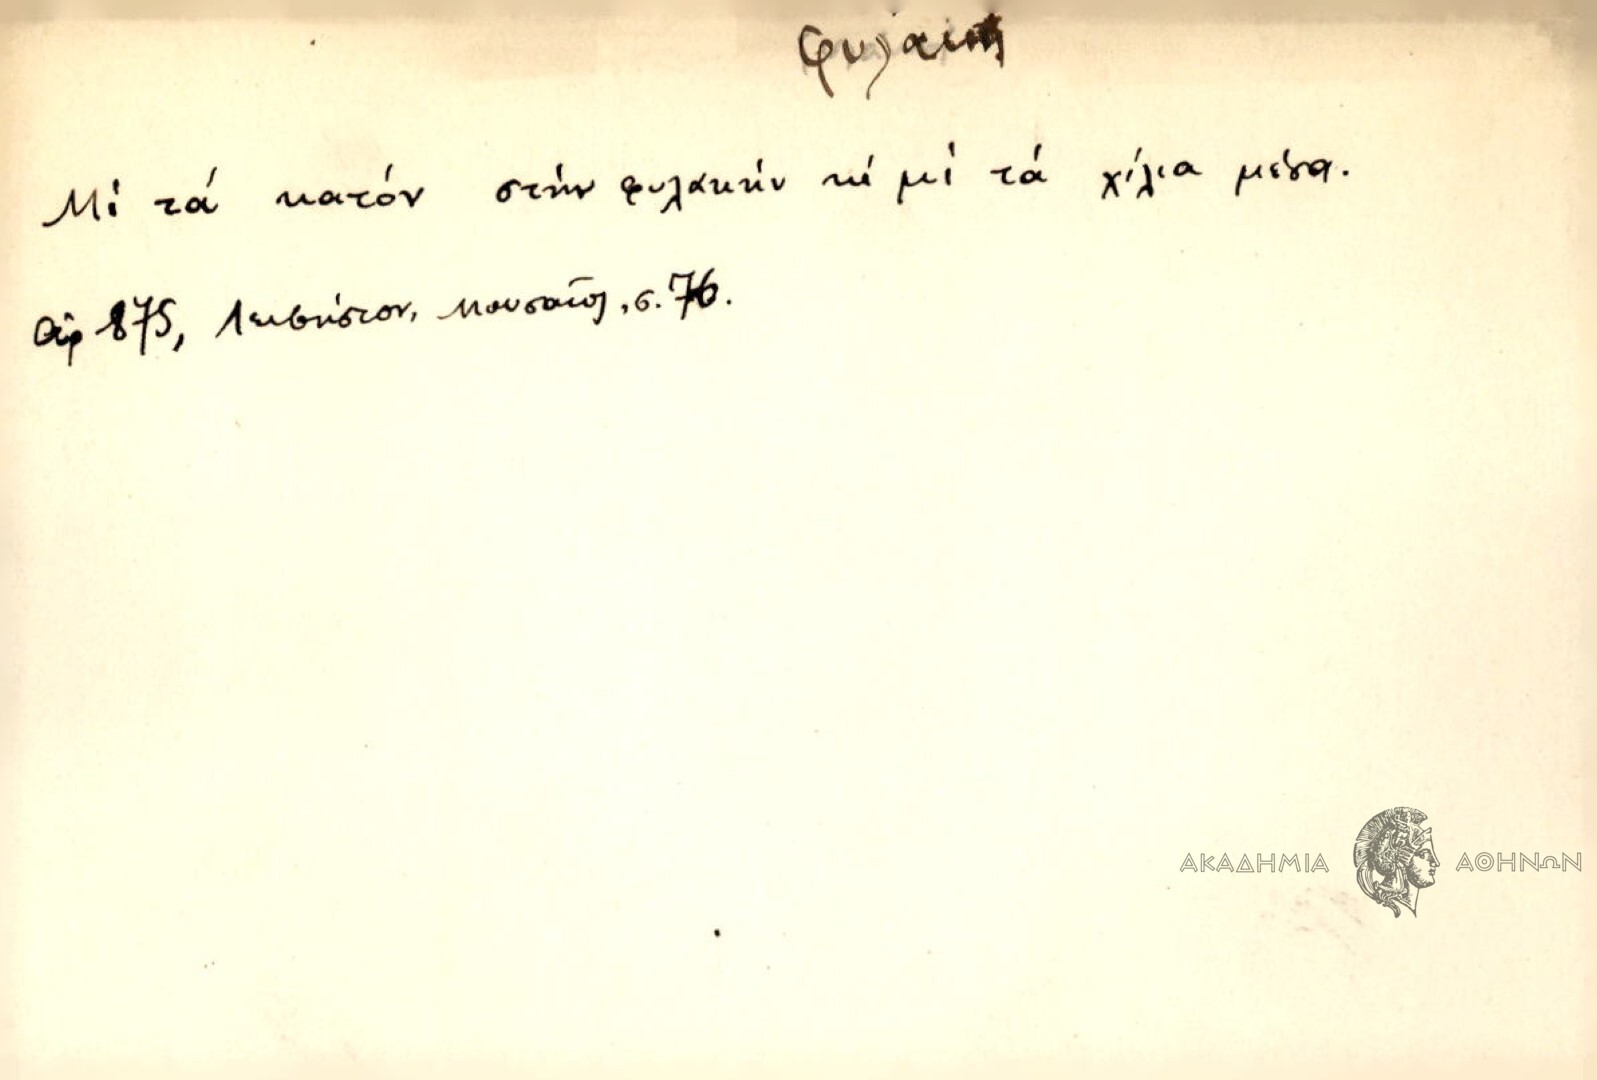 φυλακή
Μὶ τά κατόν στήν φυλακήν κί μί τά χίλια μέσα.
ἀρ 875, Λεκσήστον, Μουσαίος, σ. 76.
ΑΚΑΔΗΜΙΑ ΑΘΗΝΩΝ